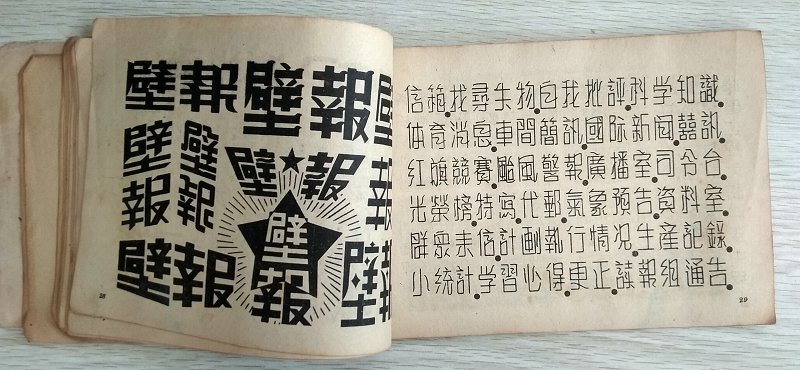 壁報 壁報 壁
壁報 壁報 壁★報
壁報
壁報
28
信箱·找尋·生物·自我批評·科学知識·
体育消息·車間簡訊·國际新闻·囍訊·
红旗競賽·颱風警報·廣播室·司令台·
光榮榜·特寫·代邮·氣象預告·資料室·
群眾来信·計劃執行情况·生産記錄·
小統計·学習心得·更正·讀報組·通告·
29